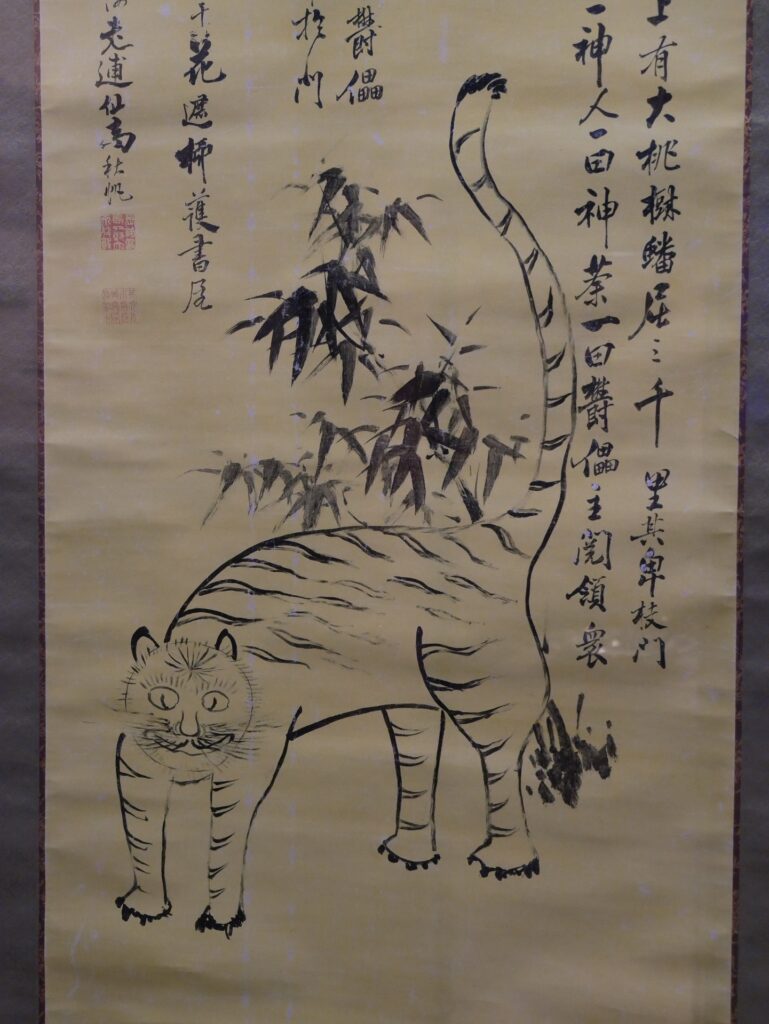 上有大桃樹蟠屈三千里其卑枝門
神人一曰神荼一曰欝儡主閲領衆
欝儡
於門
花遮柳護書屋
老逋仙